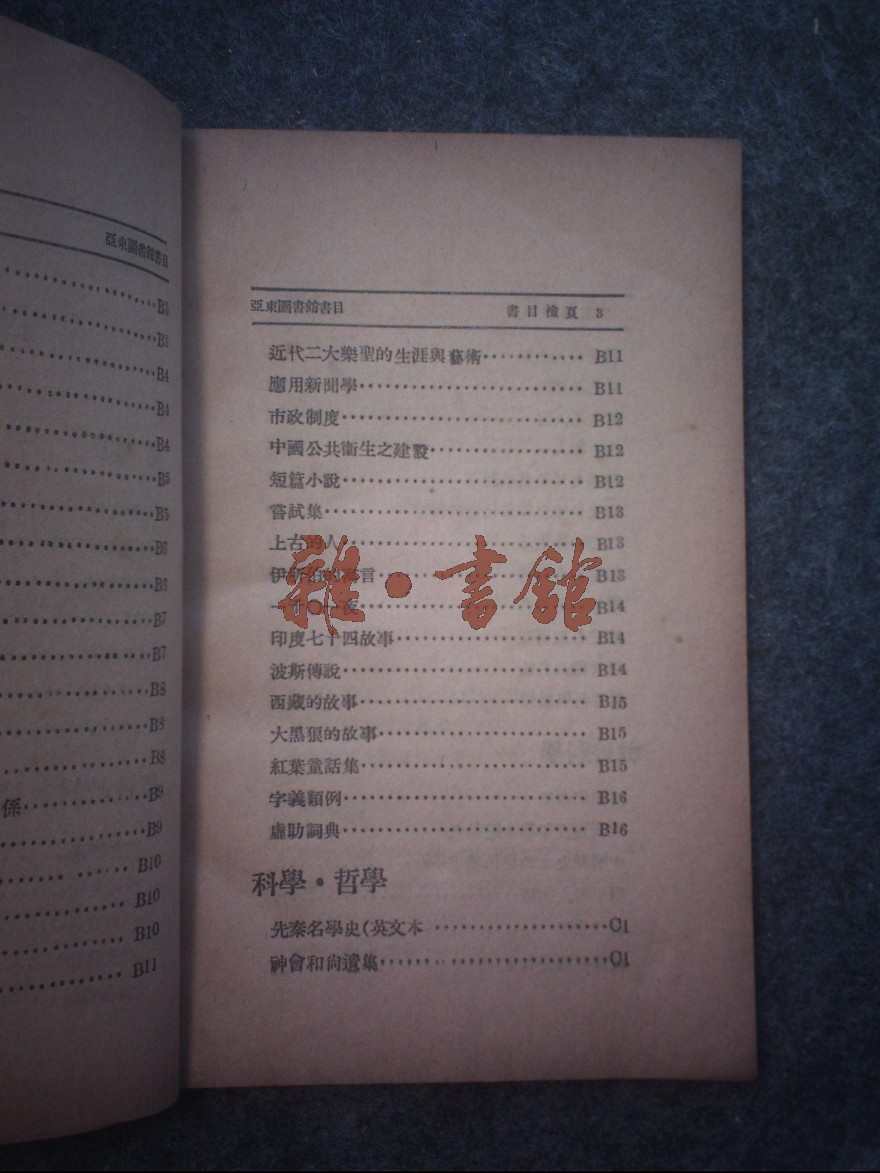 亞東圖書館書目
B3
B3
B4
B4
B4
B5
B5
B6
B6
B7
B7
B8
B8
B8
係 B9
B9
B10
B10
B10
B11
亞東圖書館書目 書目檢頁 3
近代二大樂聖的生涯與藝術 B11
應用新聞學 B11
市政制度 B12
中國公共衛生之建設 B12
短篇小說 B12
嘗試集 B13
上古的人 B13
伊 言 B13
一千〇一夜 B14
印度七十四故事 B14
波斯傳說 B14
西藏的故事 B15
大黑狼的故事 B15
紅葉童話集 B15
字義類例 B16
虛助詞典 B16
科學·哲學
先秦名學史(英文本 C1
神會和尙遺集 C1
雜·書館